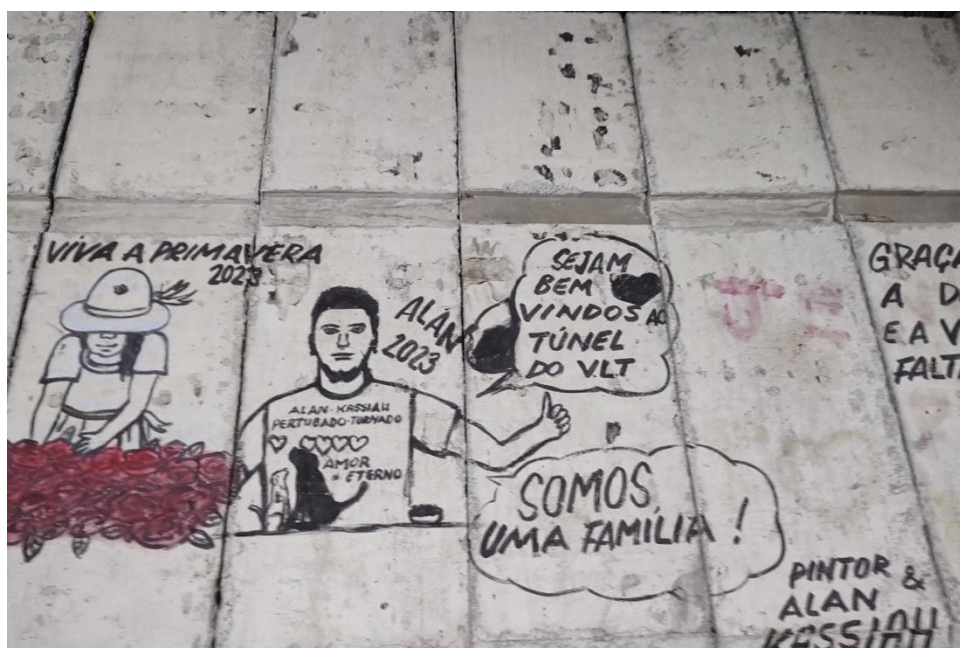 VIVA A PRIMAVERA
2023
ALAN
2023
ALAN-KASSIAH
PERTUBADO-TORNADO
AMOR
ETERNO
SEJAM
BEM
VINDOS AO
TÚNEL
DO VLT
SOMOS
UMA FAMÍLIA!
GRAÇA
A D
E A V
FALT
PINTOR &
ALAN
KASSIAH